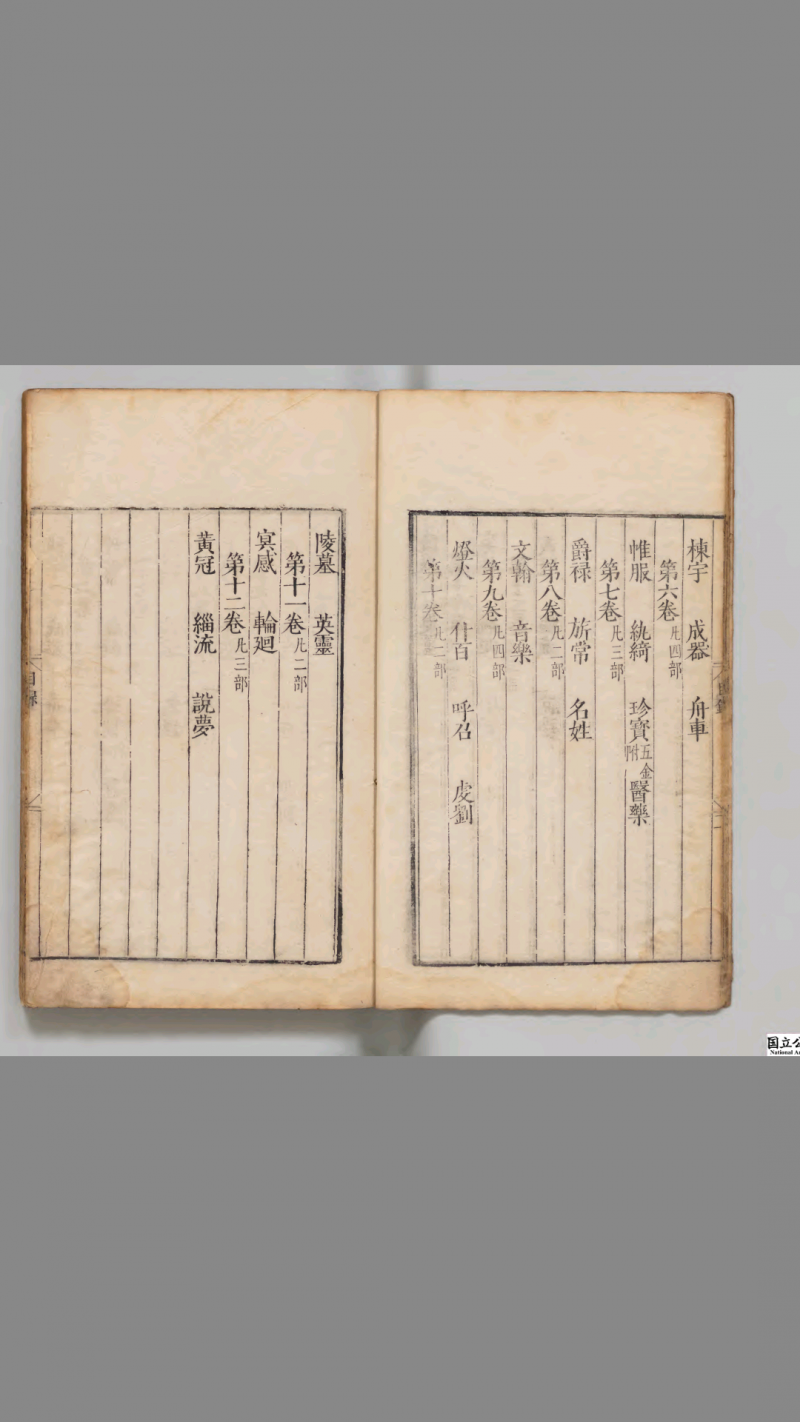 棟宇 成器 舟車
第六卷凡四部
帷服 紈綺 珍寶五金附 醫藥
第七卷凡三部
爵禄 旂常 名姓
第八卷凡二部
文翰 音樂
第九卷凡四部
燈火 什百 呼召 虔劉
第十卷凡二部
陵墓 英靈
第十一卷凡二部
㝠感 輪廻
第十二卷凡三部
黃冠 緇流 說夢
目錄
国立公
National A